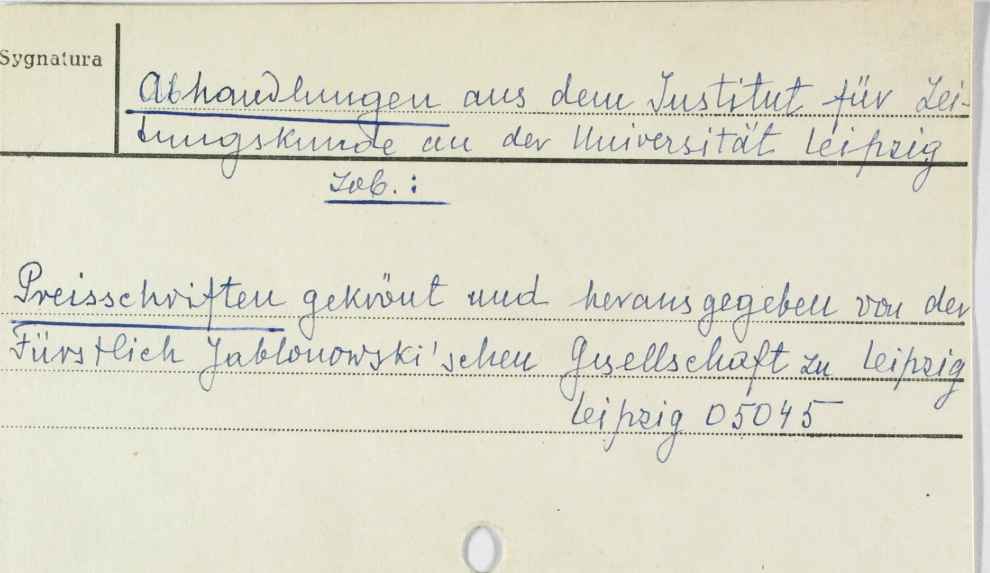 Sygnatura
Abhandlungen aus dem Institut für Zei-
tungskunde an der Universität Leipzig
Zob.:
Preisschriften gekrönt und herausgegeben von der
Fürstlich Jablonowski'schen Gesellschaft zu Leipzig
Leipzig 05045